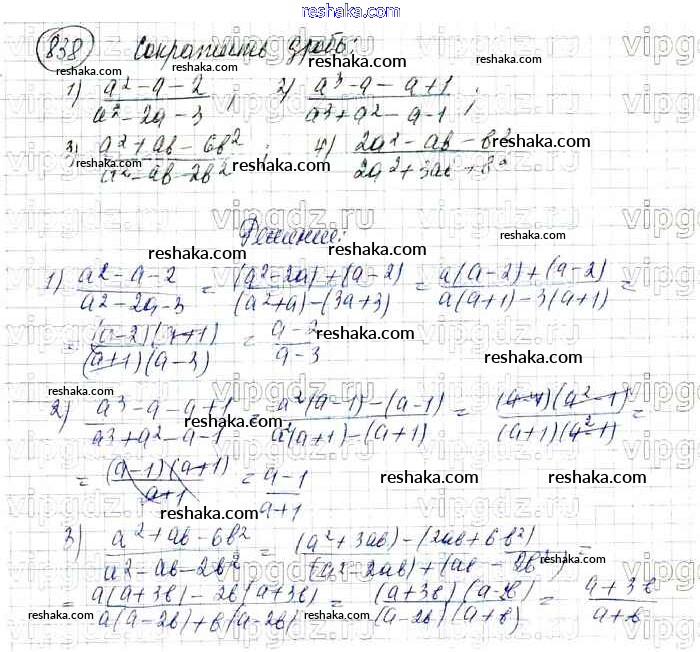 838 Сократить дробь:
1) a² - a - 2 / a² - 2a - 3 ; 2) a³ - a - a + 1 / a³ + a² - a - 1 ;
3) a² + ab - 6b² / a² - ab - 2b² ; 4) 2a² - ab - b² / 2a² + 3ab + b²
Решение:
1) a² - a - 2 / a² - 2a - 3 = (a² - 2a) + (a - 2) / (a² + a) - (3a + 3) = a(a - 2) + (a - 2) / a(a + 1) - 3(a + 1) =
= (a - 2)(a + 1) / (a + 1)(a - 3) = a - 2 / a - 3
2) a³ - a - a + 1 / a³ + a² - a - 1 = a²(a - 1) - (a - 1) / a²(a + 1) - (a + 1) = (a - 1)(a² - 1) / (a + 1)(a² - 1) =
= (a - 1)(a + 1) / a + 1 = a - 1 / a + 1
3) a² + ab - 6b² / a² - ab - 2b² = (a² + 3ab) - (2ab + 6b²) / (a² - 2ab) + (ab - 2b²) =
= a(a + 3b) - 2b(a + 3b) / a(a - 2b) + b(a - 2b) = (a + 3b)(a - 2b) / (a - 2b)(a + b) = a + 3b / a + b
reshaka.com
vipgdz.ru